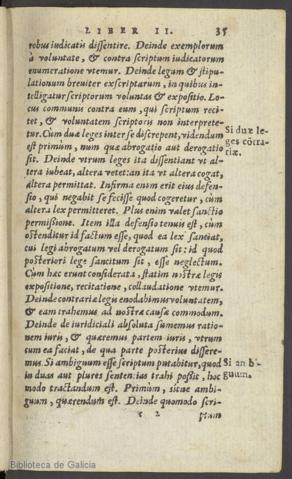 LIBER II. 35
rebus iudicatis dissentire. Deinde exemplorum
à voluntate, & contra scriptum iudicatorum
enumeratione vtemur. Deinde legum & stipu-
lationum breuiter exscriptarum, in quibus in-
telligatur scriptorum voluntas & expositio. Lo-
cus communis contra eum, qui scriptum reci-
tet, & voluntatem scriptoris non interprete-
tur. Cum duæ leges inter se discrepent, videndum
est primùm, num quæ abrogatio aut derogatio
sit. Deinde vtrum leges ita dissentiant vt al-
tera iubeat, altera vetet: an ita vt altera cogat,
altera permittat. Infirma enim erit eius defen-
sio, qui negabit se fecisse quod cogeretur, cùm
altera lex permitteret. Plus enim valet sanctio
permissione. Item illa defensio tenuis est, cùm
ostenditur id factum esse, quod ea lex sanciat,
cui legi abrogatum vel derogatum sit: id quod
posteriori lege sancitum sit, esse neglectum.
Cùm hæc erunt considerata, statim nostræ legis
expositione, recitatione, collaudatione vtemur.
Deinde contrariæ legis enodabimus voluntatem,
& eam trahemus ad nostræ causæ commodum.
Deinde de iuridiciali absoluta sumemus ratio-
nem iuris, & quæremus partem iuris, vtrum
cum ea faciat, de qua parte posterius differe-
mus. Si ambiguum esse scriptum putabitur, quod
in duas aut plures sententias trahi possit, hoc
modo tractandum est. Primùm, sitne ambi-
guum, quærendum est. Deinde quomodo scri-
ptum
Si duæ le-
ges cōtra-
riæ.
Si
guum.
Biblioteca de Galicia